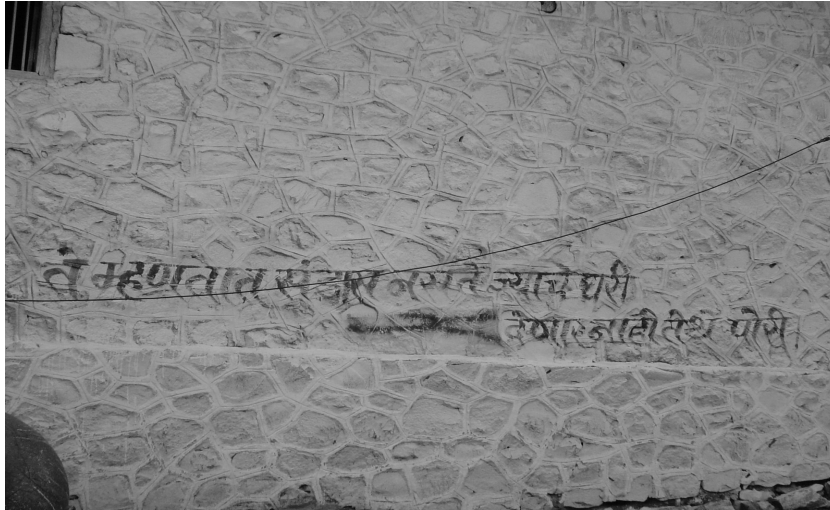 म्हणतात संडास नसते ज्याचे घरी
देणार नाही तीथे पोरी